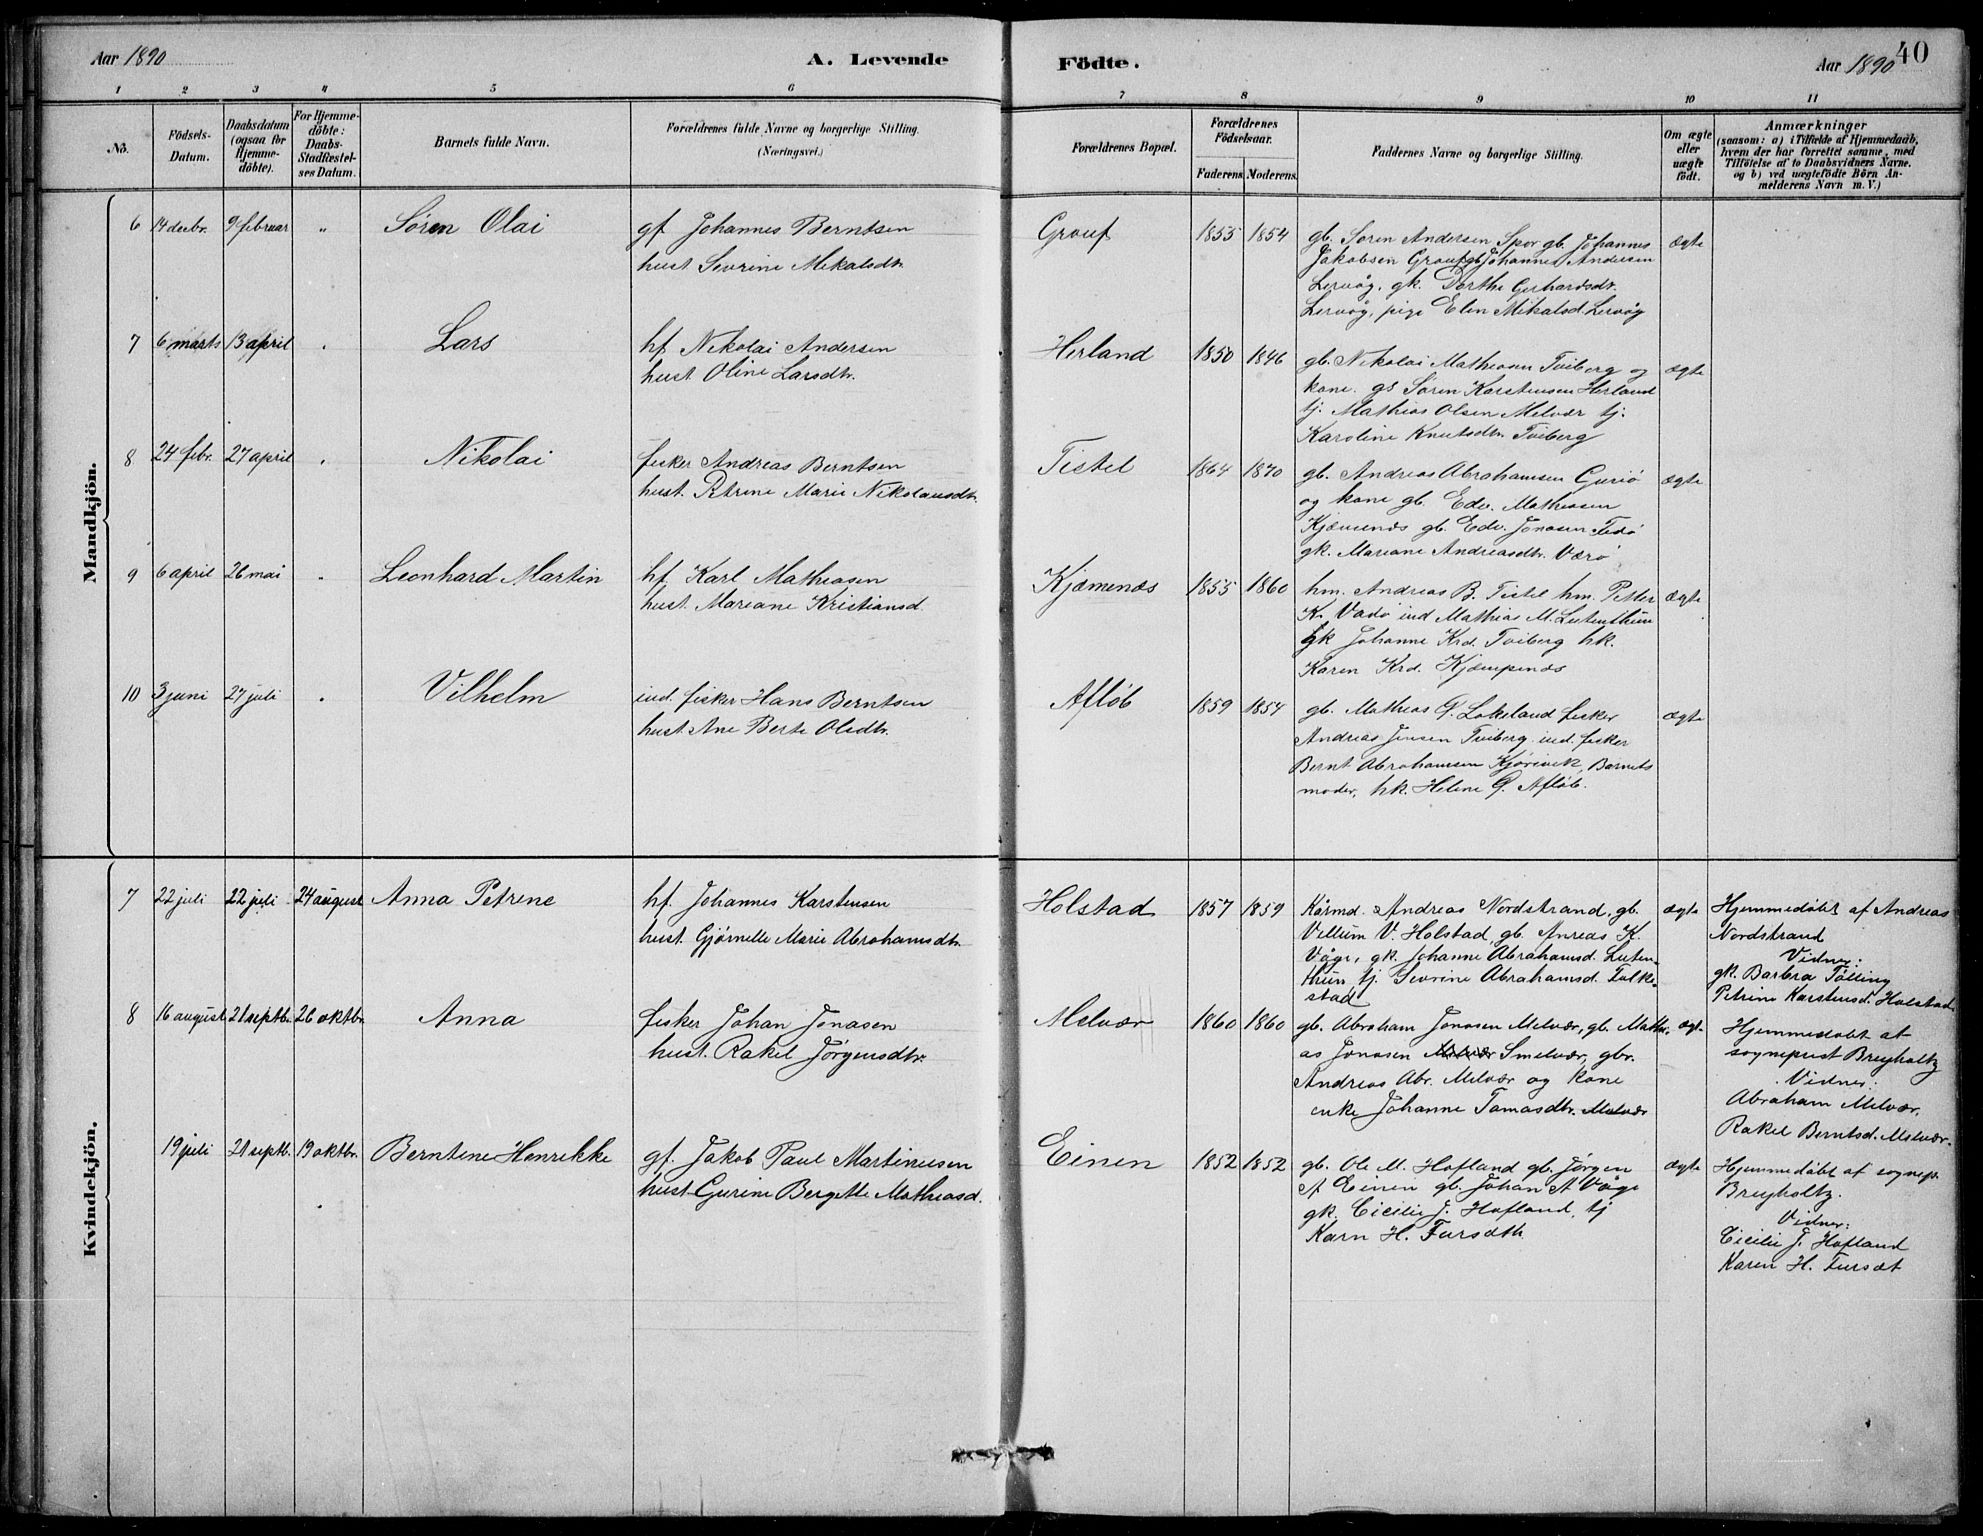 Aar 1890
A. Levende
Födte.
Aar 1890
40
1 2 3 4 5 6 7 8 9 10 11
No.
Födsels-
Datum.
Daabsdatum
(ogsaa for
Hjemme-
döbte).
For Hjemme-
döbte:
Daabs-
Stadfæstel-
ses Datum.
Barnets fulde Navn.
Forældrenes fulde Navne og borgerlige Stilling.
(Næringsvei.)
Forældrenes Bopæl.
Forældrenes
Födselsaar.
Faderens Moderens
Faddernes Navne og borgerlige Stilling.
Om ægte
eller
uægte
födt.
Anmærkninger
(saasom: a) i Tilfælde af Hjemmedaab,
hvem der har forrettet samme, med
Tilföielse af to Daabsvidners Navne.
og b) ved uægtefödte Börn An-
melderens Navn m. V.)
Mandkjön.
6 14 decbr. 9 februar " Søren Olai
gf Johannes Berntsen
hust. Severine Mikalsdtr.
Grouf 1855 1854
gb. Søren Andersen Spor gb. Johannes
Jakobsen Grouf gb Johannes Andersen
Lervåg, gk. Dorthe Gerhardsdtr.
Lervåg, pige Elen Mikalsd. Lervåg
ægte
7 6 marts 13 april " Lars
hf. Nikolai Andersen
hust. Oline Larsdtr.
Herland 1850 1846
gb. Nikolai Mathiasen Tviberg og
kone. gs Søren Karstensen Herland
tj. Mathias Olsen Melvær tj.
Karoline Knutsdtr. Tviberg
ægte
8 24 febr. 27 april " Nikolai
fisker Andreas Berntsen
hust. Petrine Marie Nikolausdtr.
Tistel 1864 1870
gb. Andreas Abrahamsen Guriö
og kone gb. Edv. Mathiasen
Kjæmenæs gb. Edv. Jonasen Tedö
gk. Mariane Andreasdtr. Værö
ægte
9 6 april 26 mai " Leonhard Martin
hf. Karl Mathiasen
hust. Mariane Kristiansd.
Kjæmenæs 1855 1860
hm. Andreas B. Tistel hm. Petter
K. Vadö ind Mathias M. Lutenthun
gk Johanne Krd. Tviberg hk.
Karen Krd. Kjæmpenæs
ægte
10 3 juni 27 juli " Vilhelm
ind. fisker Hans Berntsen
hust. Ane Berte Olsdtr.
Afløb 1859 1854
gb. Mathias G. Lokeland fisker
Andreas Jensen Tviberg ind. fisker
Bernt Abrahamsen Kjörevik, Barnets
moder, hk. Helene G. Afløb.
ægte
Kvindekjön.
7 22 juli 22 juli 24 august Anna Petrine
hf. Johannes Karstensen
hust. Gjørnelle Marie Abrahamsdtr.
Holstad 1857 1859
Kårmd. Andreas Nordstrand, gb.
Vellum V. Holstad, gb. Anreas K.
Våge, gk. Johanne Abrahamsd. Luten-
thun, tj. Severine Abrahamsd. Folke-
stad
ægte
Hjemmedøbt af Andreas
Nordstrand
Vidner:
gk. Barbra Tølling
Petrine Karstensd. Holstad
8 16 august 21 septb. 26 oktbr. Anna
fisker Johan Jonasen
hust. Rakel Jørgensdtr.
Melvær 1860 1860
gb. Abraham Jonasen Melvær, gb. Mathi-
as Jonasen Melvær Smelvær, gbr.
Andreas Abr. Melvær og kone
enke Johanne Tomasdtr. Melvær
ægt-
Hjemmedøbt af
sogneprest Breyholtz
Vidner:
Abraham Melvær.
Rakel Berntsd. Melvær.
19 juli 21 septb. 19 oktbr. Berntine Henrikke
gf. Jakob Paul Martinusen
hust. Gurine Bergitte Mathiasd.
Einen 1852 1852
gb. Ole M. Hofland gb. Jørgen
A Einen gb. Johan A Våge
gk. Cicilie J. Hofland, tj
Karn H. Fursdtr.
ægte
Hjemmedøbt af sognep.
Breyholtz.
Vidner:
Cicilie J. Hofland
Karen H. Fursæt